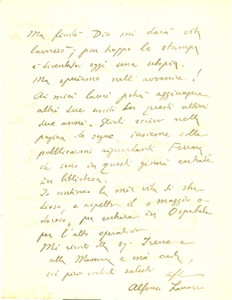 Ma finché Dio mi darà vita
lavorerò; pur troppo la stampa
è diventata oggi una utopia.
Ma speriamo nell'avvenire!
Ai miei lavori potrà aggiungere
altri due usciti in questi ultimi
due anni. Glieli scrivo nella
pagina che segue, insieme colle
pubblicazioni riguardanti Ferrara
che sono in questi giorni entrate
in biblioteca.
Io continuo la mia vita di stu-
dioso, e aspetto il maggio o-
doroso, per entrare in Ospedale
per l'altra operazione.
Mi ricordi alla sig. Irene e
alla Mamma e mi creda,
coi più cordiali saluti aff.
Alfonso